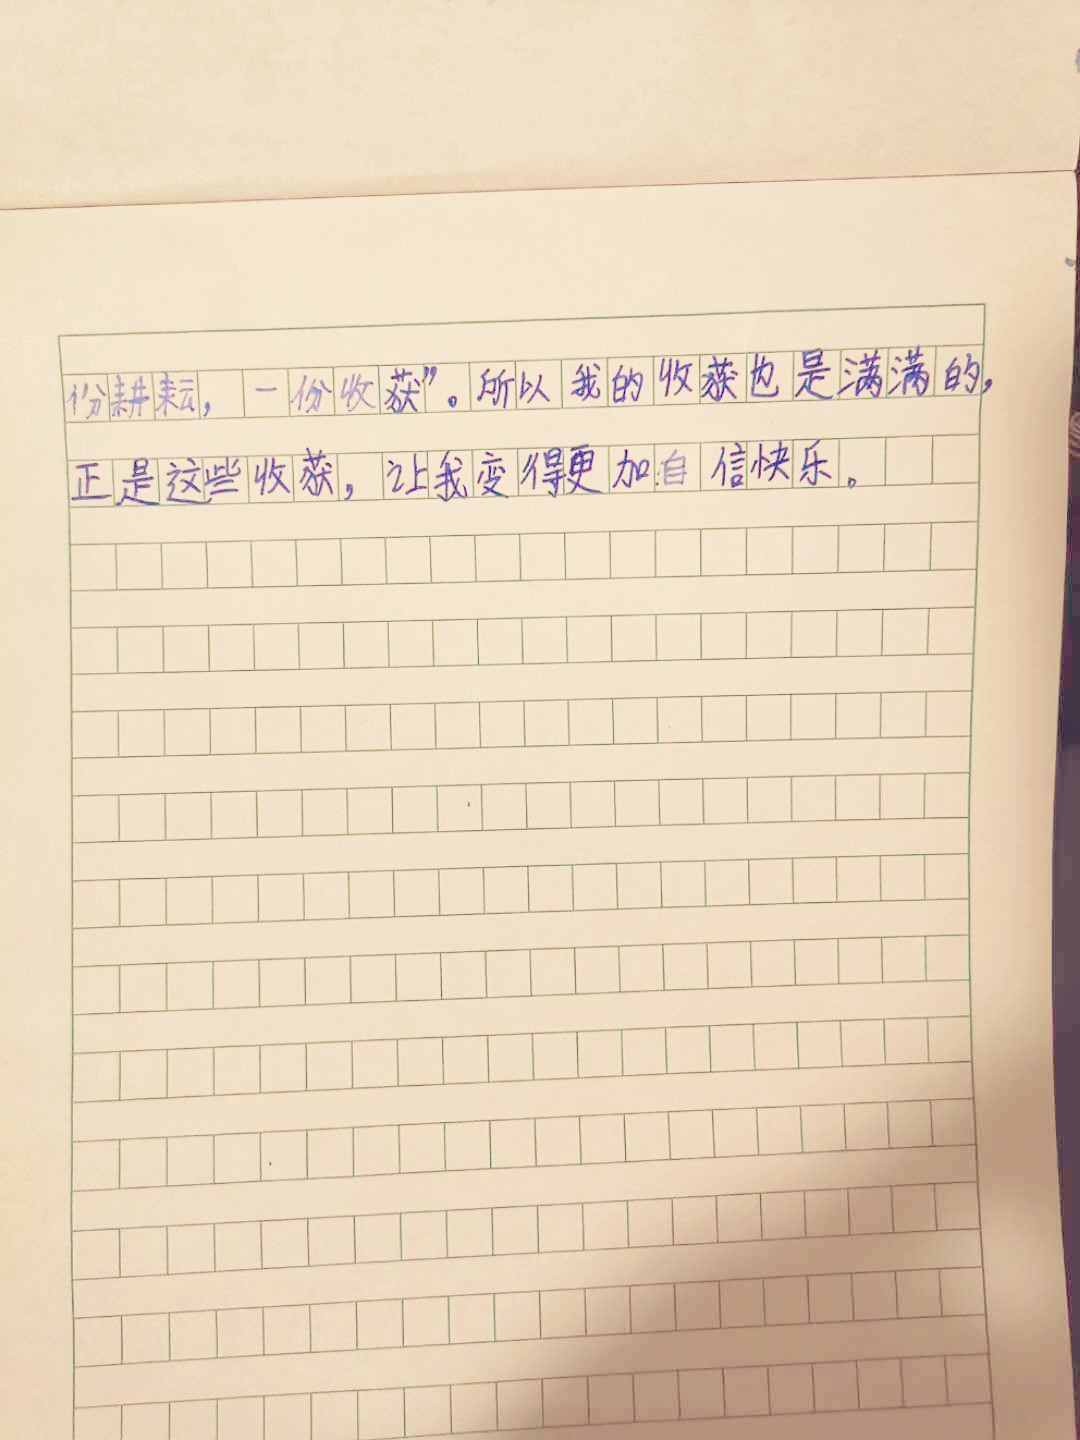 份耕耘，一份收获”。所以我的收获也是满满的，
正是这些收获，让我变得更加自信快乐。